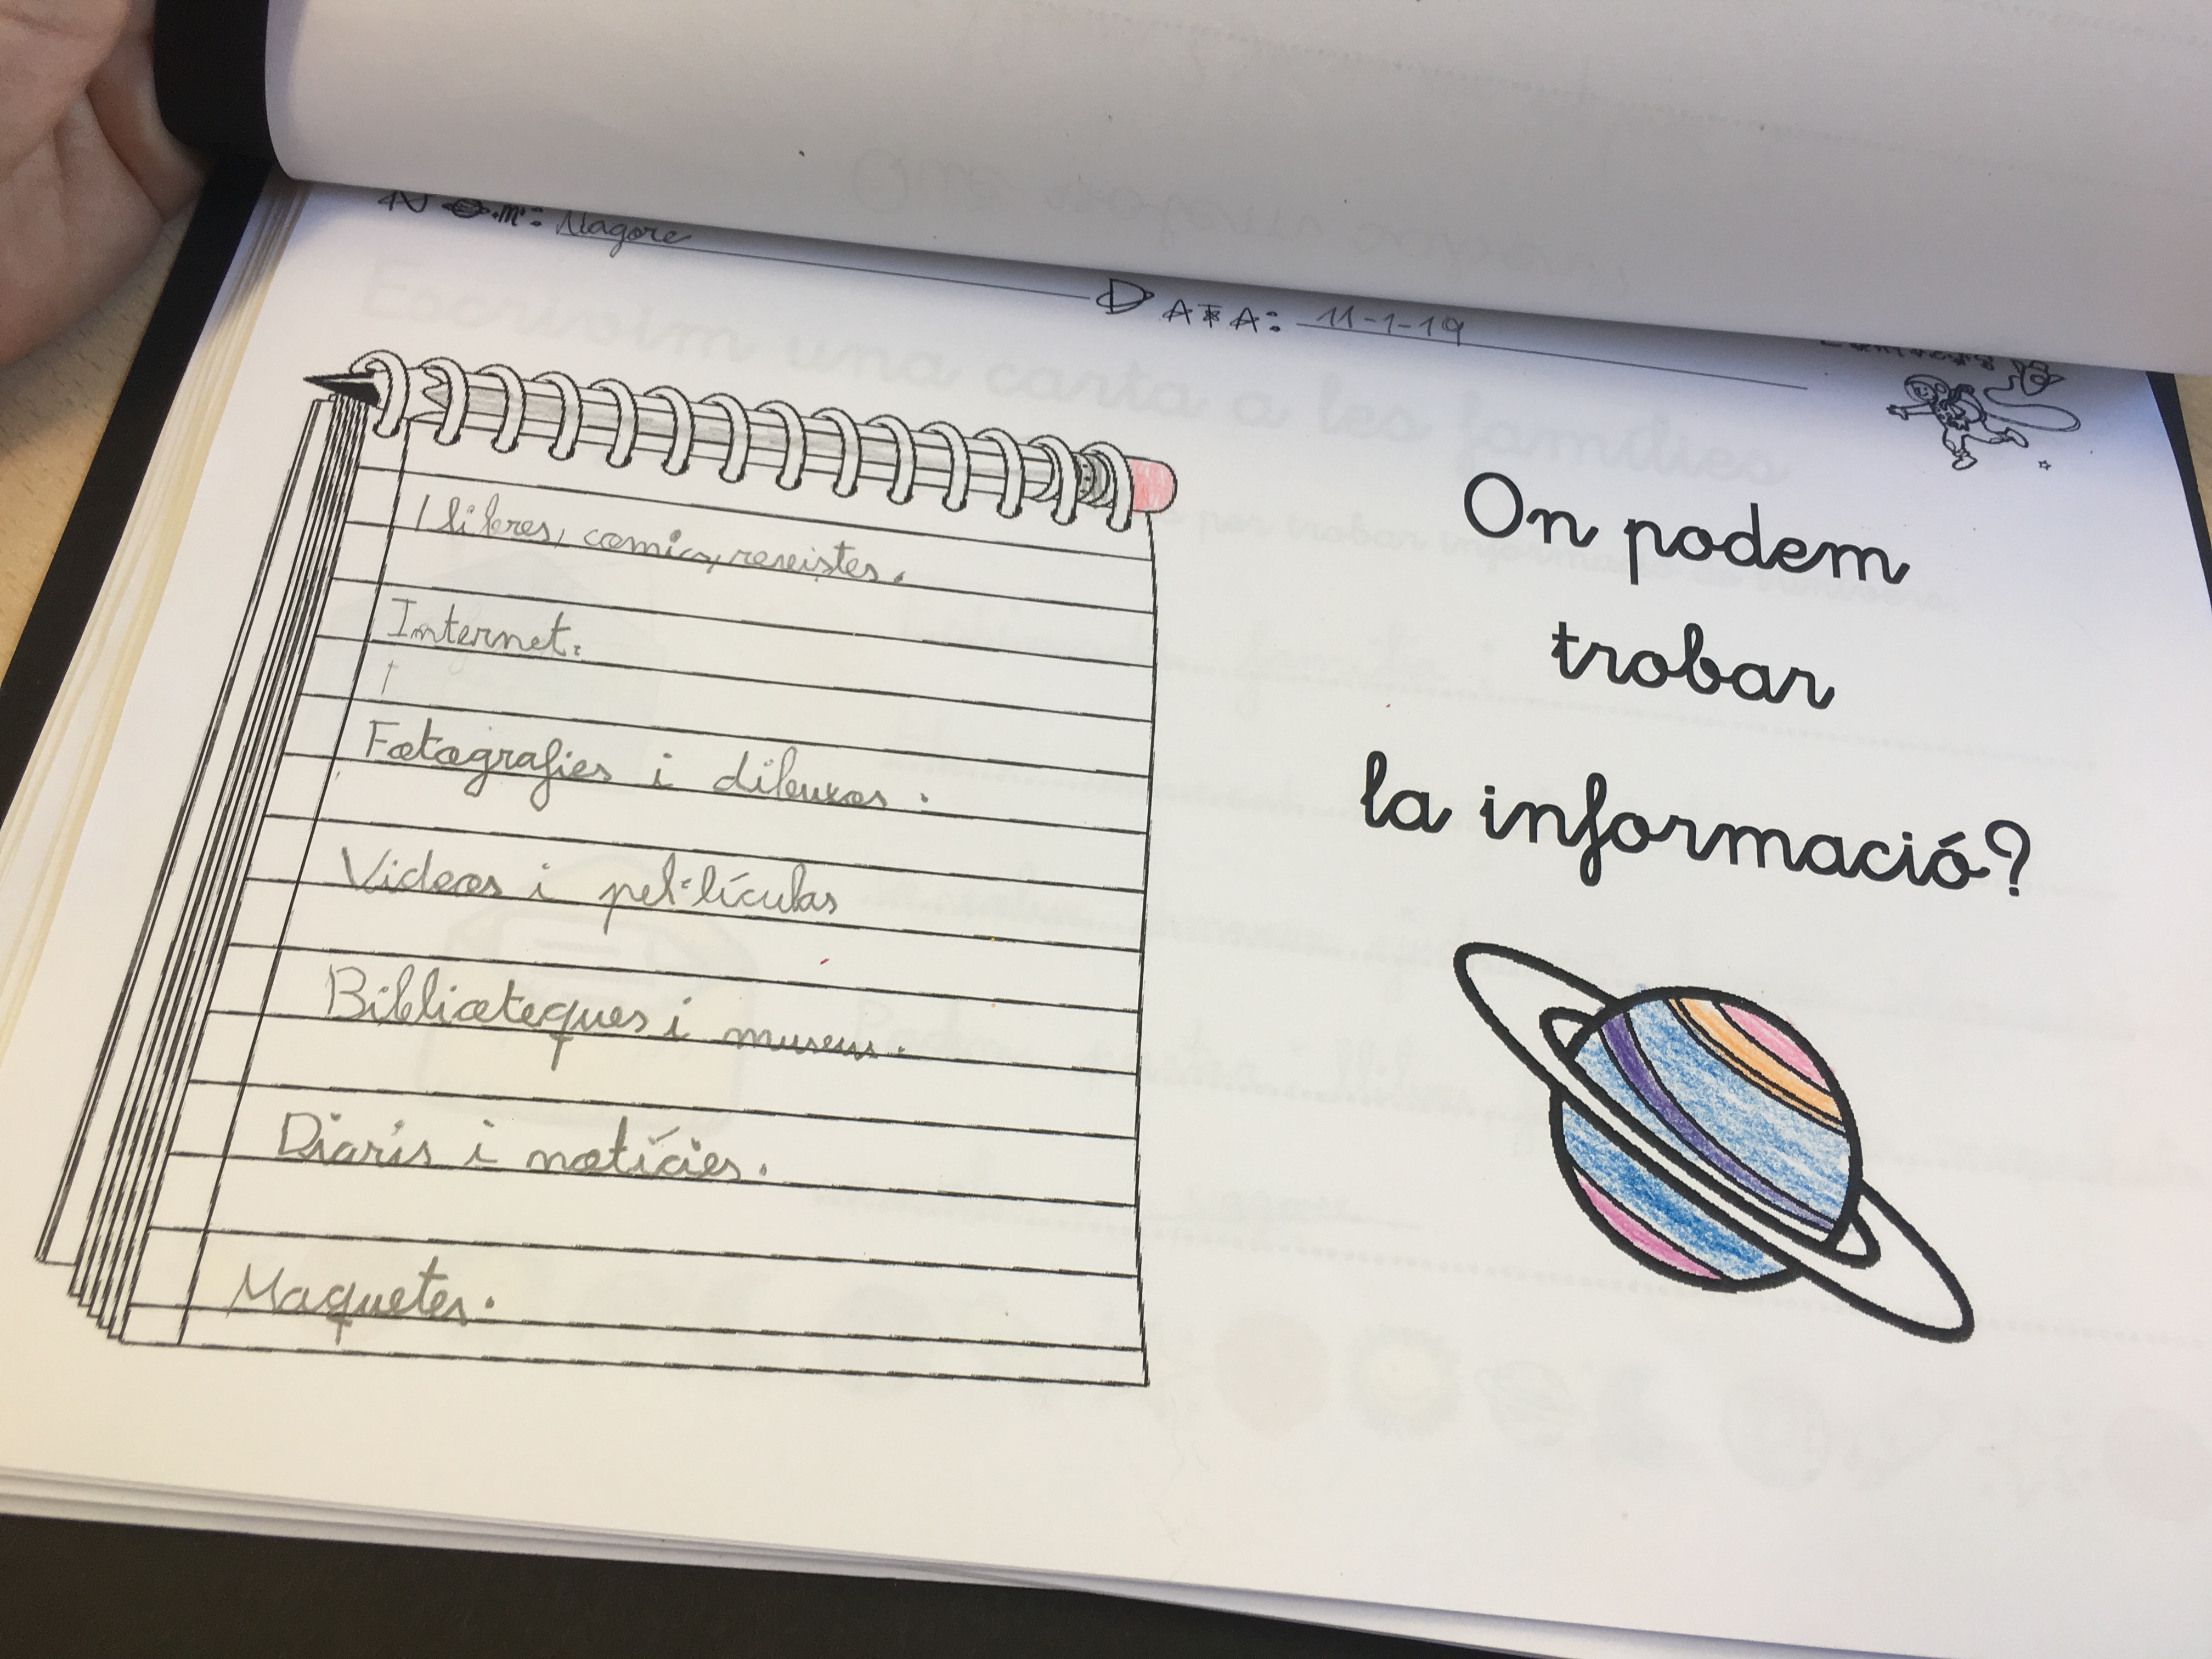 Nom: Nagore
DATA: 11-1-19
On podem
trobar
la informació?
Llibres, comics, revistes.
Internet.
Fotografies i dibuxos.
Videos i pel·lículas
Biblioteques i museus.
Diaris i notícies.
Maquetes.